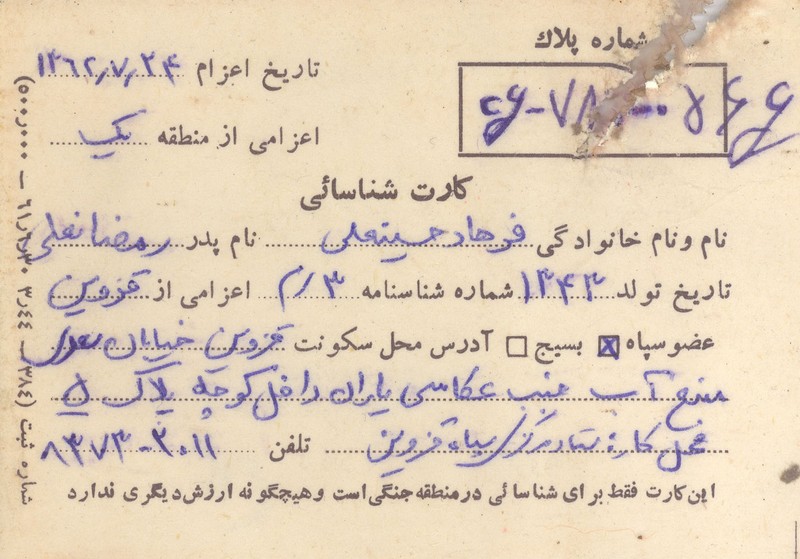 شماره پلاك
تاریخ اعزام ۱۳۶۲٫۷٫۲۴
اعزامی از منطقه یک
کارت شناسائی
نام و نام خانوادگی فرهاد حسینعلی نام پدر رمضانعلی
تاریخ تولد ۱۳۴۳ شماره شناسنامه ۳/م اعزامی از قزوین
عضو سپاه ☒ بسیج ☐ آدرس محل سکونت قزوین خیابان سعدی
منبع آب جنب عکاسی یاران داخل کوچه پلاک
محل کار ستاد مرکزی سپاه قزوین تلفن ۲۰۱۱-۸۳۷۳
این کارت فقط برای شناسائی در منطقه جنگی است و هیچگونه ارزش دیگری ندارد
شماره ثبت